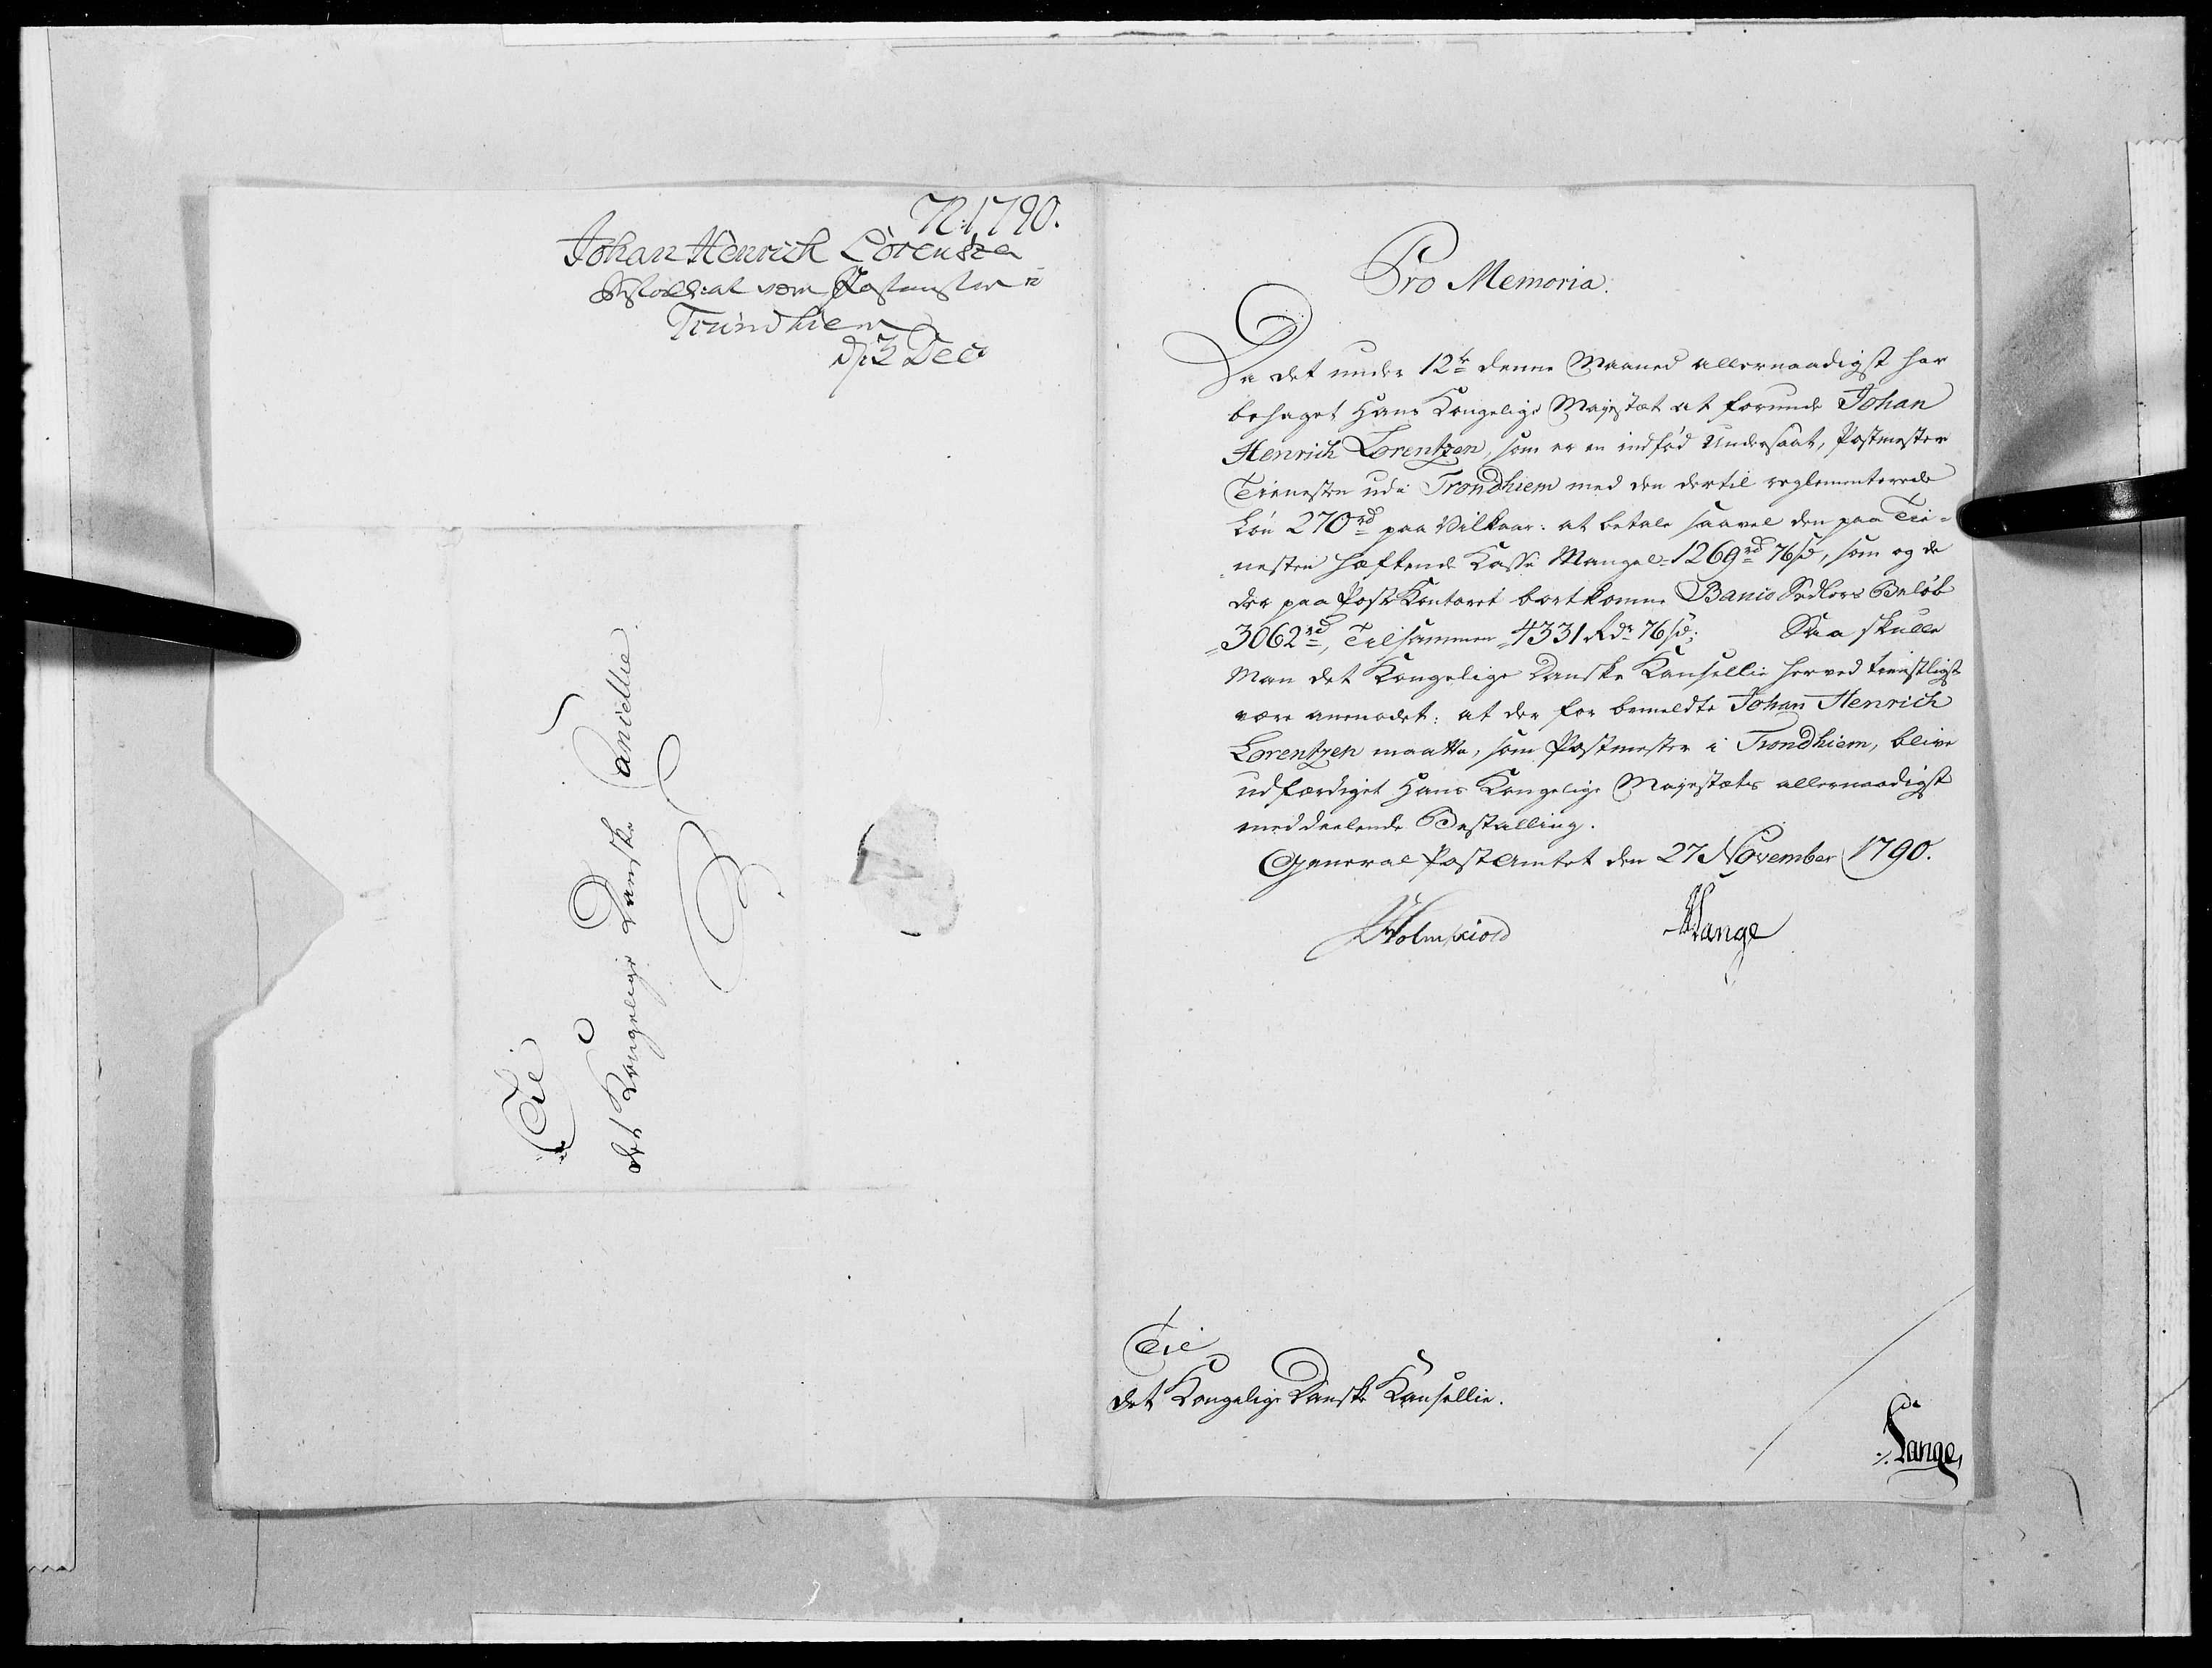 N: 1790.
Johan Henrich Lorensen
Bestall: at være Postmester i
Trundhiem
d/ 3 Dec
Til
det Kongelige Danske Cancellie
Pro Memoria.
Da det under 12te denne Maaned allernaadigst har
behaget Hans Kongelige Majestæt at forunde Johan
Henrich Lorentzen, som er en indfød Undersaat, Postmester
Tienesten udi Trondhiem med den dertil reglementerede
Løn 270rd paa Vilkaar: at betale saavel den paa Tie-
nesten hæftende Kasse Mangel 1269rd 76ß, som og de
der paa Post Kontoret bortkomne Banco Sedlers Beløb
3062rd, Tilsammen 4331 Rdr 76ß; Saa skulle
Man det Kongelige Danske Kanselie herved tienstligst
være anmodet: at der for bemeldte Johan Henrich
Lorentzen maatte, som Postmester i Trondhiem, blive
udfærdiget Hans Kongelige Majestæts allernaadigst
meddeelende Bestalling.
General Post Amtet den 27 November 1790.
Holmskiold Lange
Til
det Kongelige Danske Kansellie.
Lange